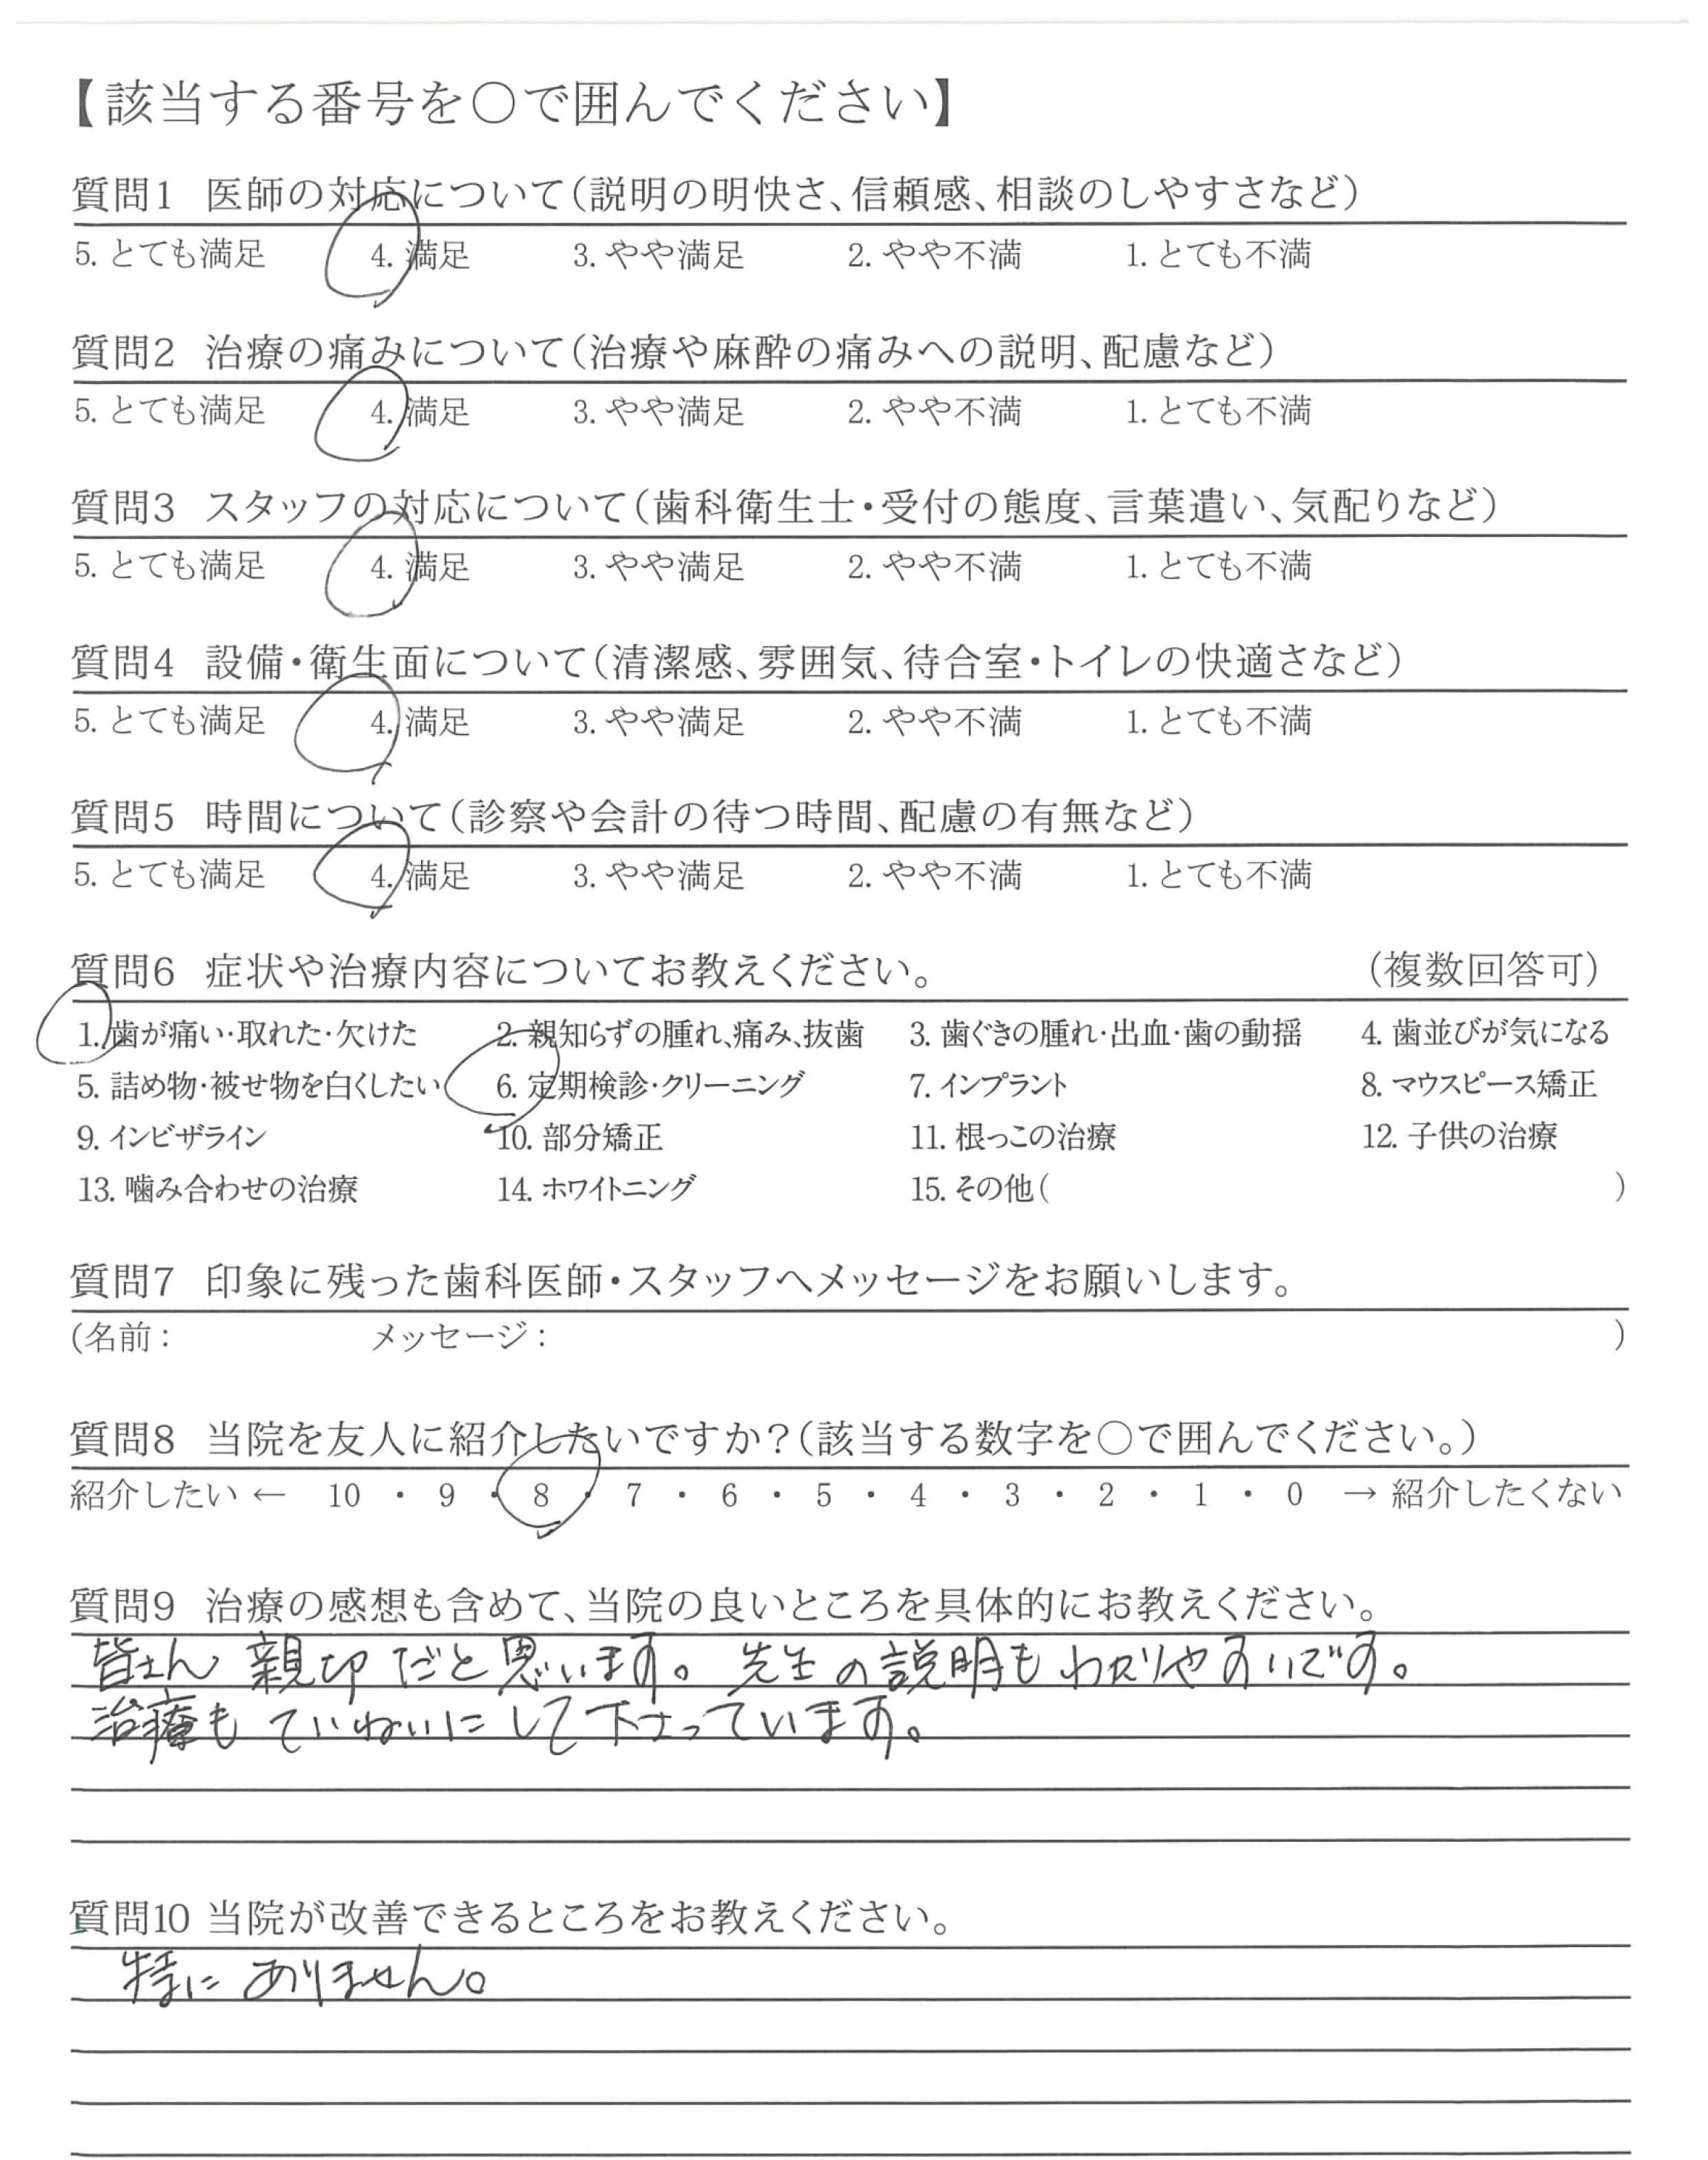 【該当する番号を○で囲んでください】
質問1 医師の対応について(説明の明快さ、信頼感、相談のしやすさなど)
5. とても満足 4. 満足 3. やや満足 2. やや不満 1. とても不満
質問2 治療の痛みについて(治療や麻酔の痛みへの説明、配慮など)
5. とても満足 4. 満足 3. やや満足 2. やや不満 1. とても不満
質問3 スタッフの対応について(歯科衛生士・受付の態度、言葉遣い、気配りなど)
5. とても満足 4. 満足 3. やや満足 2. やや不満 1. とても不満
質問4 設備・衛生面について(清潔感、雰囲気、待合室・トイレの快適さなど)
5. とても満足 4. 満足 3. やや満足 2. やや不満 1. とても不満
質問5 時間について(診察や会計の待つ時間、配慮の有無など)
5. とても満足 4. 満足 3. やや満足 2. やや不満 1. とても不満
質問6 症状や治療内容についてお教えください。 (複数回答可)
1. 歯が痛い・取れた・欠けた 2. 親知らずの腫れ、痛み、抜歯 3. 歯ぐきの腫れ・出血・歯の動揺 4. 歯並びが気になる
5. 詰め物・被せ物を白くしたい 6. 定期検診・クリーニング 7. インプラント 8. マウスピース矯正
9. インビザライン 10. 部分矯正 11. 根っこの治療 12. 子供の治療
13. 噛み合わせの治療 14. ホワイトニング 15. その他( )
質問7 印象に残った歯科医師・スタッフへメッセージをお願いします。
(名前: メッセージ: )
質問8 当院を友人に紹介したいですか?(該当する数字を○で囲んでください。)
紹介したい ← 10 ・ 9 ・ 8 ・ 7 ・ 6 ・ 5 ・ 4 ・ 3 ・ 2 ・ 1 ・ 0 → 紹介したくない
質問9 治療の感想も含めて、当院の良いところを具体的にお教えください。
皆さん 親切だと思います。先生の説明もわかりやすいです。
治療もていねいにして下さっています。
質問10 当院が改善できるところをお教えください。
特にありません。